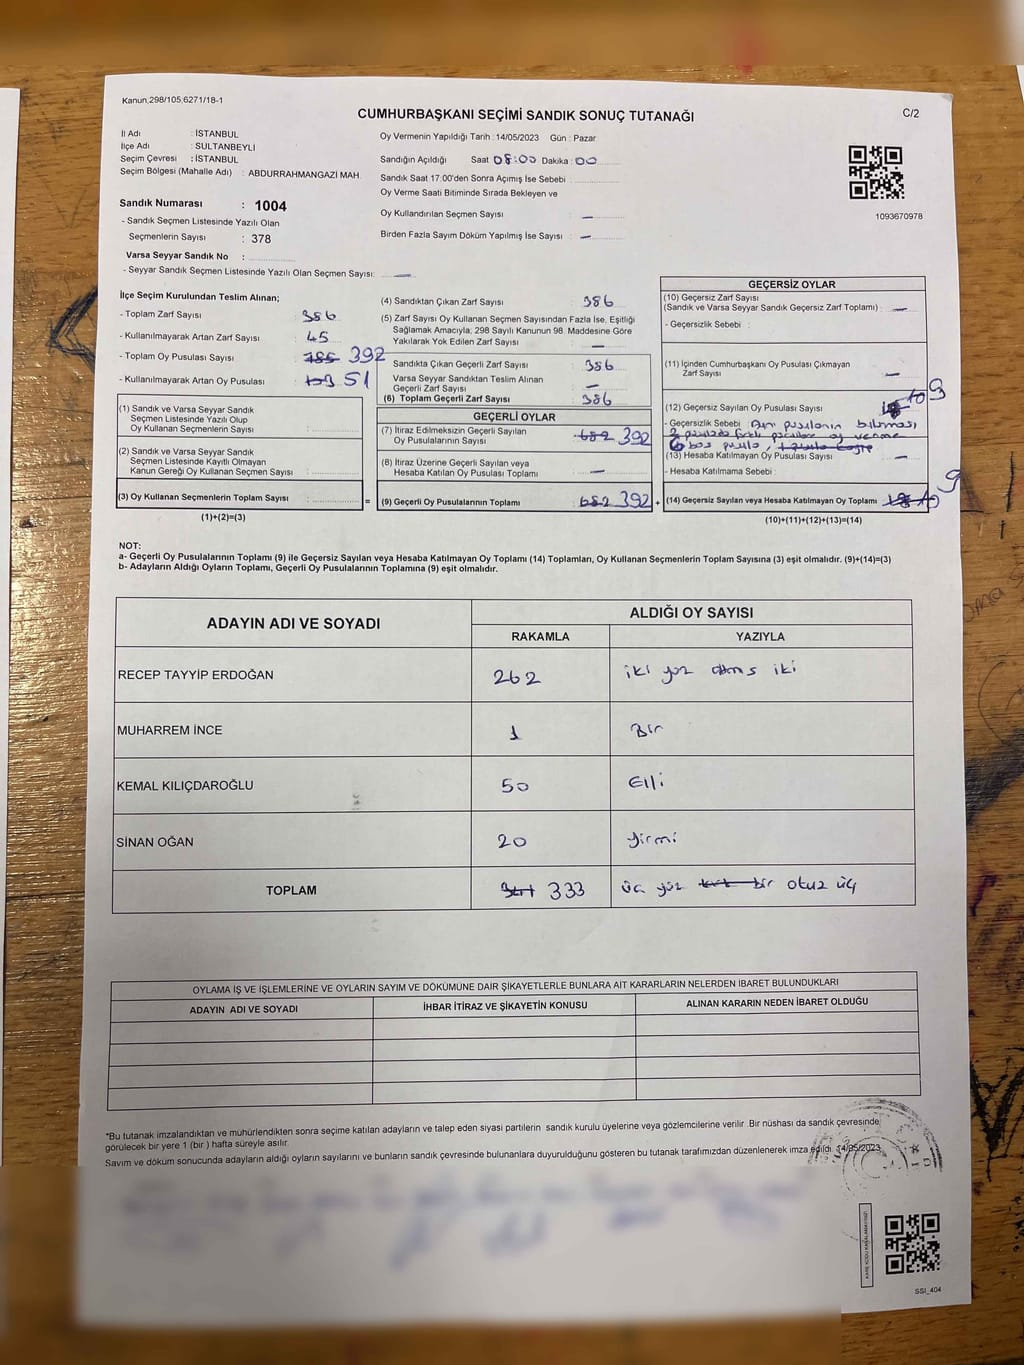 Kanun,298/105,6271/18-1
CUMHURBAŞKANI SEÇİMİ SANDIK SONUÇ TUTANAĞI
C/2
İl Adı : İSTANBUL
İlçe Adı : SULTANBEYLİ
Seçim Çevresi : İSTANBUL
Seçim Bölgesi (Mahalle Adı) : ABDURRAHMANGAZİ MAH.
Oy Vermenin Yapıldığı Tarih : 14/05/2023 Gün : Pazar
Sandığın Açıldığı Saat 08:00 Dakika : 00
Sandık Saat 17.00'den Sonra Açımış İse Sebebi :
Oy Verme Saati Bitiminde Sırada Bekleyen ve
Oy Kullandırılan Seçmen Sayısı : —
Birden Fazla Sayım Döküm Yapılmış İse Sayısı : —
1093670978
Sandık Numarası : 1004
- Sandık Seçmen Listesinde Yazılı Olan
Seçmenlerin Sayısı : 378
Varsa Seyyar Sandık No :
- Seyyar Sandık Seçmen Listesinde Yazılı Olan Seçmen Sayısı: —
İlçe Seçim Kurulundan Teslim Alınan;
- Toplam Zarf Sayısı : 386
- Kullanılmayarak Artan Zarf Sayısı : 45
- Toplam Oy Pusulası Sayısı : 785 392
- Kullanılmayarak Artan Oy Pusulası : 103 51
(1) Sandık ve Varsa Seyyar Sandık
Seçmen Listesinde Yazılı Olup
Oy Kullanan Seçmenlerin Sayısı :
(2) Sandık ve Varsa Seyyar Sandık
Seçmen Listesinde Kayıtlı Olmayan
Kanun Gereği Oy Kullanan Seçmen Sayısı :
(3) Oy Kullanan Seçmenlerin Toplam Sayısı : =
(1)+(2)=(3)
(4) Sandıktan Çıkan Zarf Sayısı : 386
(5) Zarf Sayısı Oy Kullanan Seçmen Sayısından Fazla İse, Eşitliği
Sağlamak Amacıyla; 298 Sayılı Kanunun 98. Maddesine Göre
Yakılarak Yok Edilen Zarf Sayısı : —
Sandıkta Çıkan Geçerli Zarf Sayısı : 386
Varsa Seyyar Sandıktan Teslim Alınan
Geçerli Zarf Sayısı : —
(6) Toplam Geçerli Zarf Sayısı : 386
GEÇERLİ OYLAR
(7) İtiraz Edilmeksizin Geçerli Sayılan
Oy Pusulalarının Sayısı : 682 392
(8) İtiraz Üzerine Geçerli Sayılan veya
Hesaba Katılan Oy Pusulası Toplamı : —
(9) Geçerli Oy Pusulalarının Toplamı : 682 392 +
GEÇERSİZ OYLAR
(10) Geçersiz Zarf Sayısı
(Sandık ve Varsa Seyyar Sandık Geçersiz Zarf Toplamı) : —
- Geçersizlik Sebebi :
(11) İçinden Cumhurbaşkanı Oy Pusulası Çıkmayan
Zarf Sayısı : —
(12) Geçersiz Sayılan Oy Pusulası Sayısı : 10 9
- Geçersizlik Sebebi :
(13) Hesaba Katılmayan Oy Pusulası Sayısı : —
- Hesaba Katılmama Sebebi :
(14) Geçersiz Sayılan veya Hesaba Katılmayan Oy Toplamı : 10 9
(10)+(11)+(12)+(13)=(14)
NOT:
a- Geçerli Oy Pusulalarının Toplamı (9) ile Geçersiz Sayılan veya Hesaba Katılmayan Oy Toplamı (14) Toplamları, Oy Kullanan Seçmenlerin Toplam Sayısına (3) eşit olmalıdır. (9)+(14)=(3)
b- Adayların Aldığı Oyların Toplamı, Geçerli Oy Pusulalarının Toplamına (9) eşit olmalıdır.
ADAYIN ADI VE SOYADI
ALDIĞI OY SAYISI
RAKAMLA YAZIYLA
RECEP TAYYİP ERDOĞAN 262 iki yüz atmıs iki
MUHARREM İNCE 1 Bir
KEMAL KILIÇDAROĞLU 50 Elli
SİNAN OĞAN 20 yirmi
TOPLAM 333 üc yüz bir otuz üç
OYLAMA İŞ VE İŞLEMLERİNE VE OYLARIN SAYIM VE DÖKÜMÜNE DAİR ŞİKAYETLERLE BUNLARA AİT KARARLARIN NELERDEN İBARET BULUNDUKLARI
ADAYIN ADI VE SOYADI İHBAR İTİRAZ VE ŞİKAYETİN KONUSU ALINAN KARARIN NEDEN İBARET OLDUĞU
*Bu tutanak imzalandıktan ve mühürlendikten sonra seçime katılan adayların ve talep eden siyasi partilerin sandık kurulu üyelerine veya gözlemcilerine verilir. Bir nüshası da sandık çevresinde
görülecek bir yere 1 (bir) hafta süreyle asılır.
Sayım ve döküm sonucunda adayların aldığı oyların sayılarını ve bunların sandık çevresinde bulunanlara duyurulduğunu gösteren bu tutanak tarafımızdan düzenlenerek imza edildi. 14/05/2023
SSİ_404